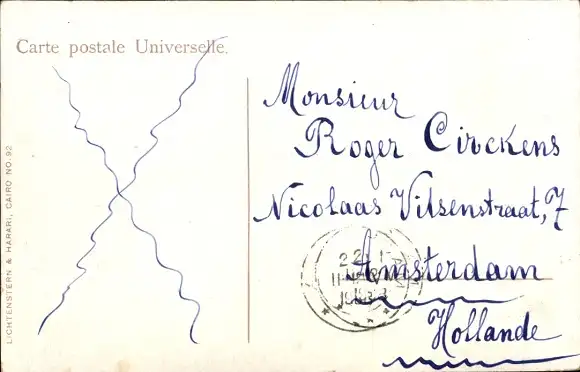 Carte postale Universelle.
Monsieur
Roger Circkens
Nicolaas Vitsenstraat, 7
Amsterdam
Hollande
LICHTENSTERN & HARARI, CAIRO NO. 92